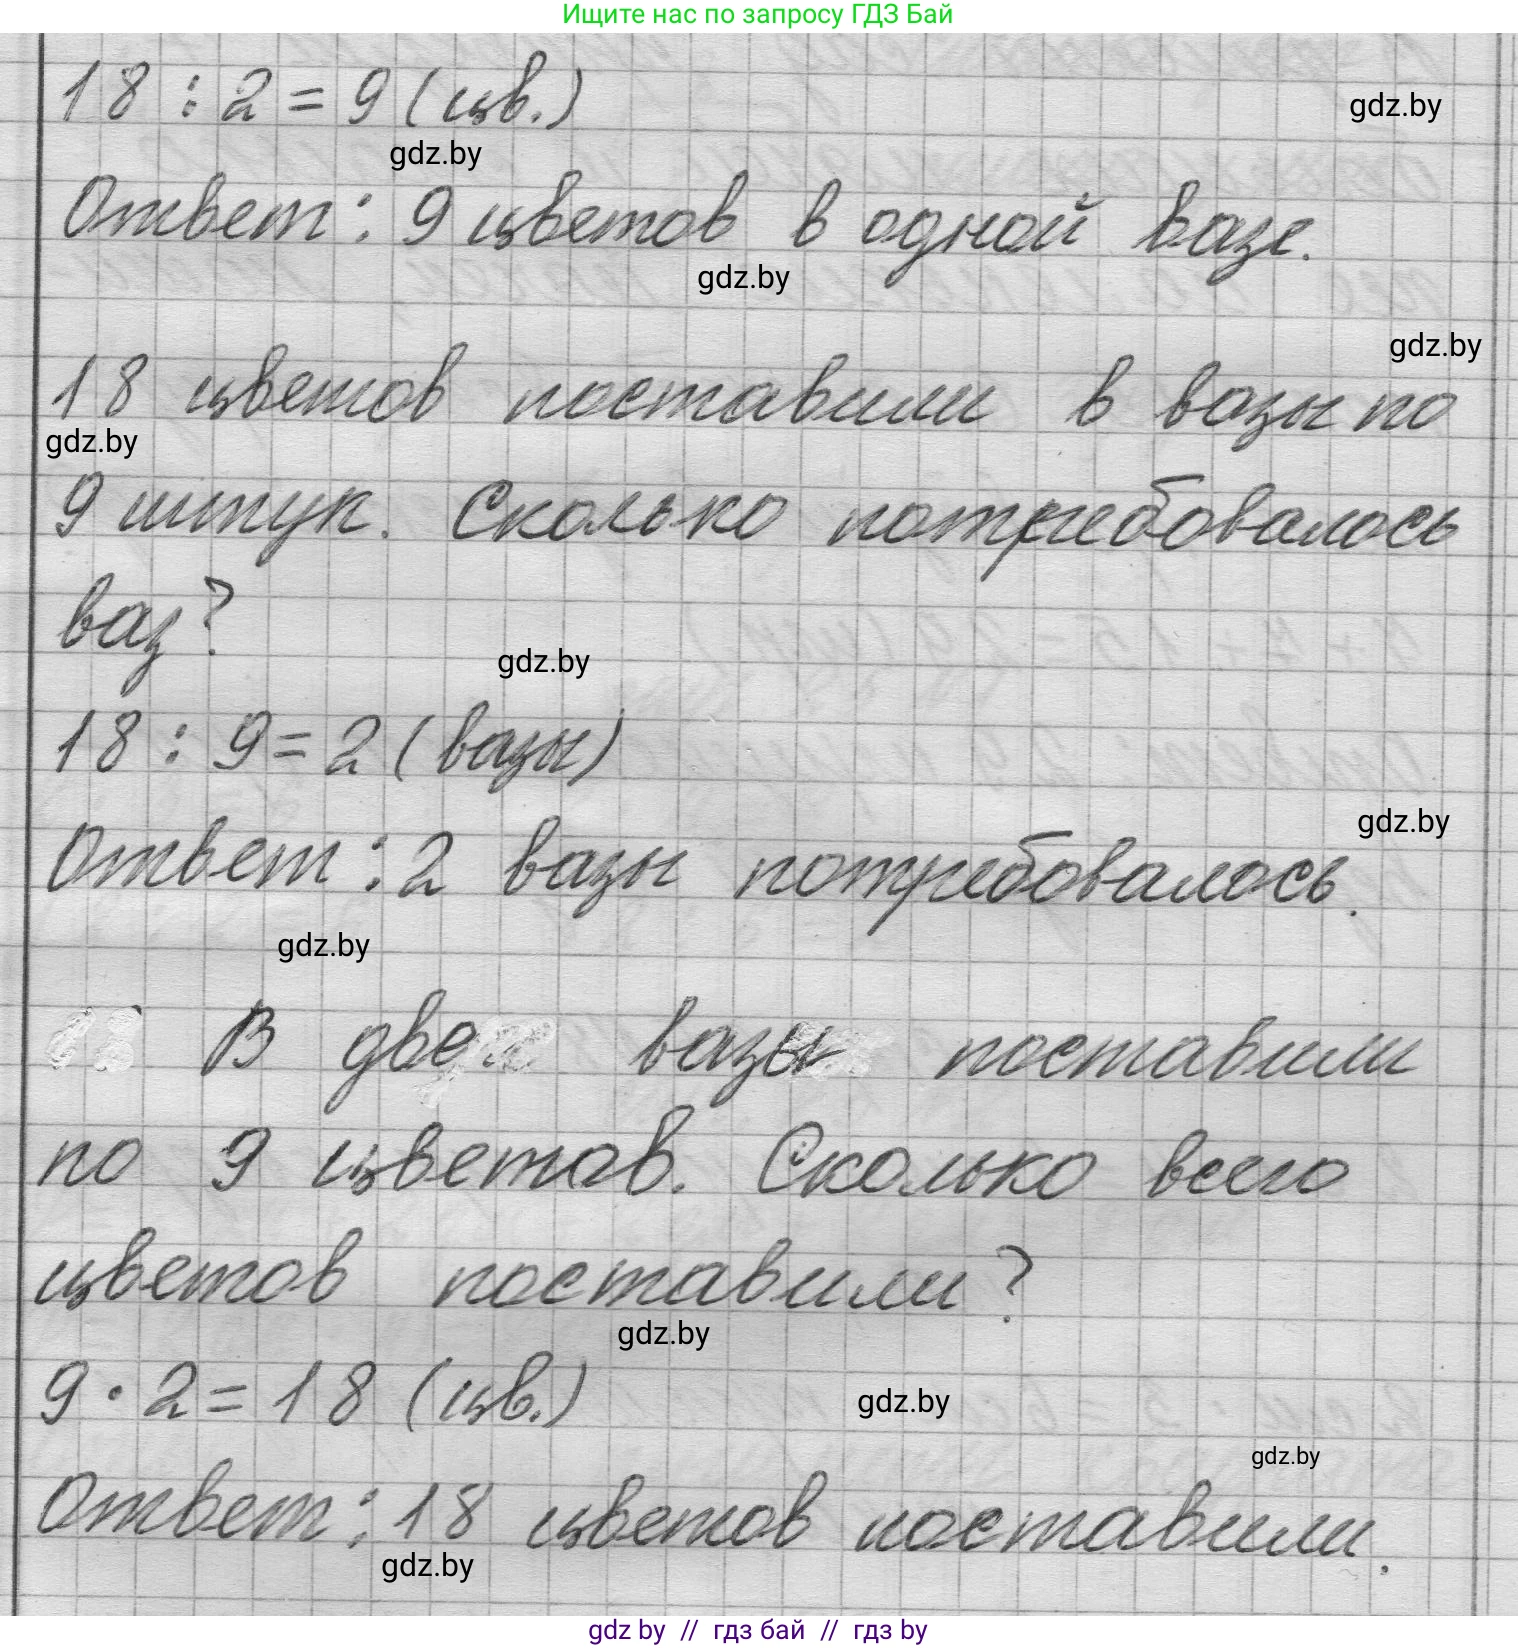 Ищите нас по запросу ГДЗ Бай
18 : 2 = 9 (цв.)
gdz.by
gdz.by
Ответ: 9 цветов в одной вазе.
gdz.by
gdz.by
18 цветов поставили в вазы по
gdz.by
9 штук. Сколько потребовалось
ваз?
gdz.by
18 : 9 = 2 (вазы)
gdz.by
Ответ: 2 вазы потребовалось.
gdz.by
В две вазы поставили
по 9 цветов. Сколько всего
цветов поставили?
gdz.by
9 · 2 = 18 (цв.)
gdz.by
gdz.by
Ответ: 18 цветов поставили.
gdz.by
gdz.by // гдз бай // гдз by